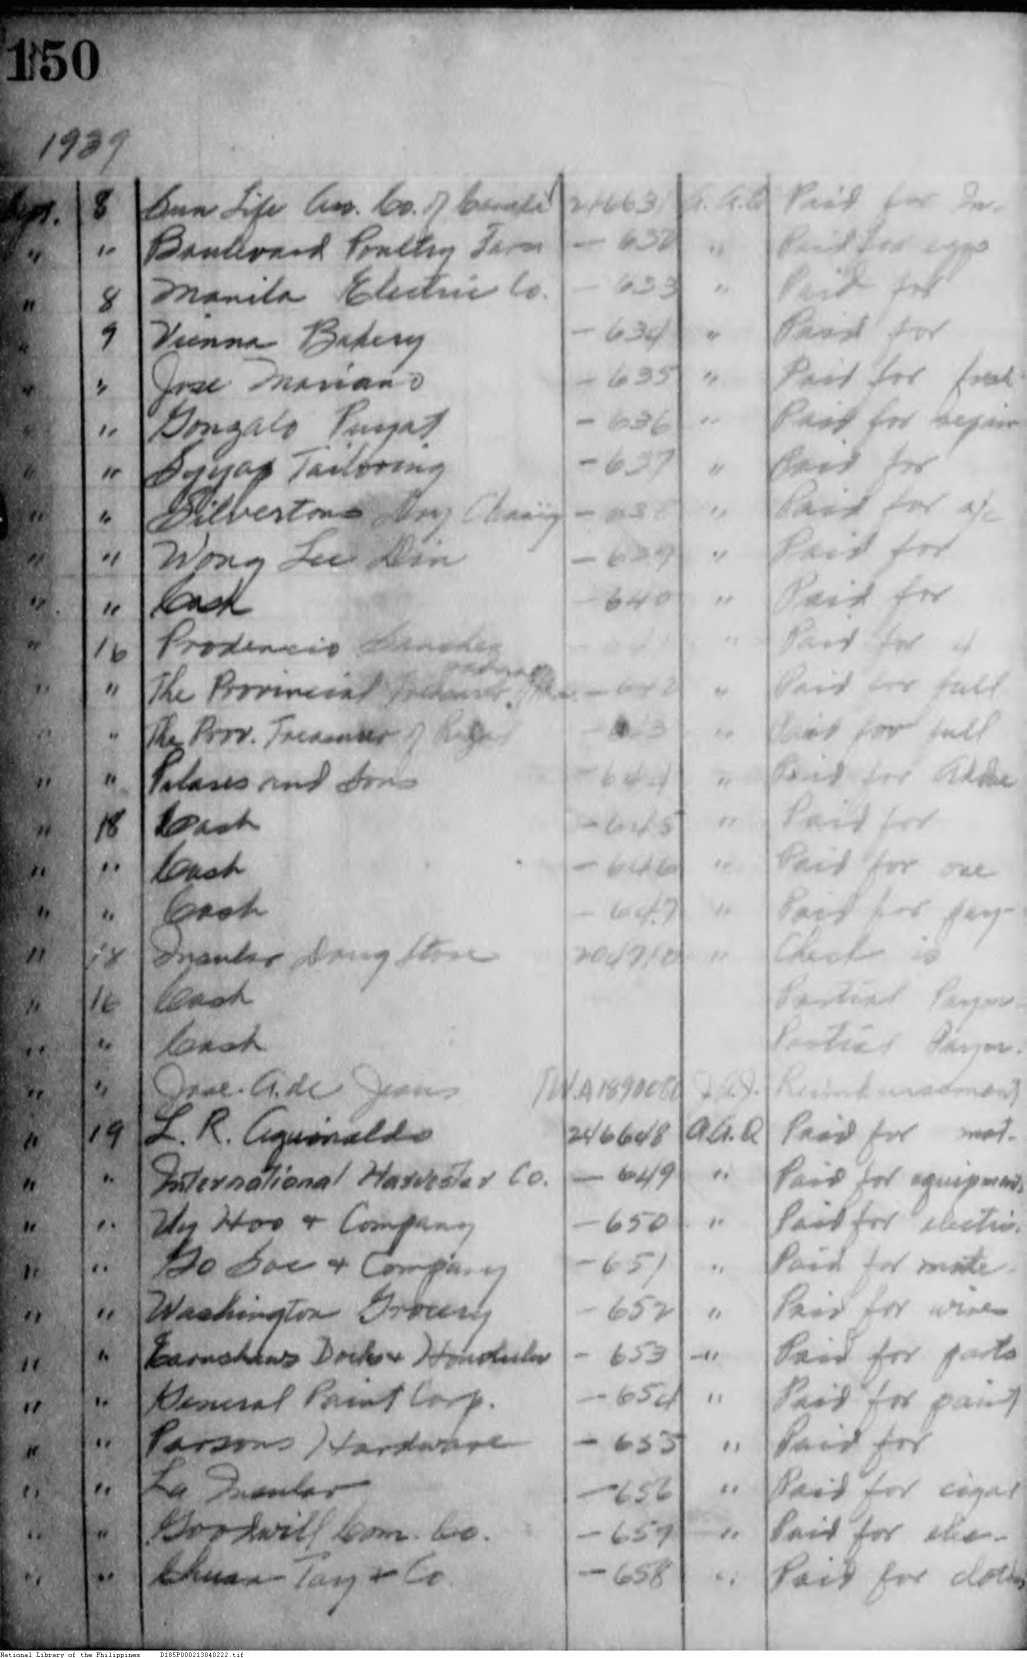 150
1939
Sept. 8 Sun Life Ass. Co. of Canada 246631 A.A.Q Paid for In-
" " Boulevard Poultry Farm - 632 " Paid for eggs
" 8 Manila Electric Co. - 633 " Paid for
" 9 Vienna Bakery - 634 " Paid for
" " Jose Mariano - 635 " Paid for
" " Gonzalo Puyat - 636 " Paid for repair
" " Syyap Tailoring - 637 " Paid for
" " Silverstone Dry - 638 " Paid for a/c
" " Wong Lee Din - 639 " Paid for
" " Cash - 640 " Paid for
" 16 Prodencio Sanchez " Paid for
" " The Provincial Treasurer - 642 " Paid for full
" The Prov. Treasurer of Rizal - 643 " Paid for full
" " Pelases and Sons - 644 " Paid for
" 18 Cash - 645 " Paid for
" " Cash - 646 " Paid for one
" " Cash - 647 " Paid for pay-
" 18 Insular Drug Store " Check is
" 16 Cash Partial Paym-
" " Cash Partial Paym.
" " Jose A. de Jesus Reimbursement
" 19 L. R. Aguinaldo 246648 A.A.Q Paid for mat-
" " International Harvester Co. - 649 " Paid for equipment
" " Uy Hoo + Company - 650 " Paid for electri.
" " Go Soc + Company - 651 " Paid for mate-
" " Washington Grocery - 652 " Paid for wines
" " Earnshaws Docks + Honolulu - 653 - " Paid for parts
" " General Paint Corp. - 654 " Paid for paint
" " Parsons Hardware - 655 " Paid for
" " La Insular - 656 " Paid for cigar
" " Goodwill Com. Co. - 657 " Paid for ele-
" " Chuan Tay + Co. - 658 " Paid for
National Library of the Philippines D185P000213040222.tif